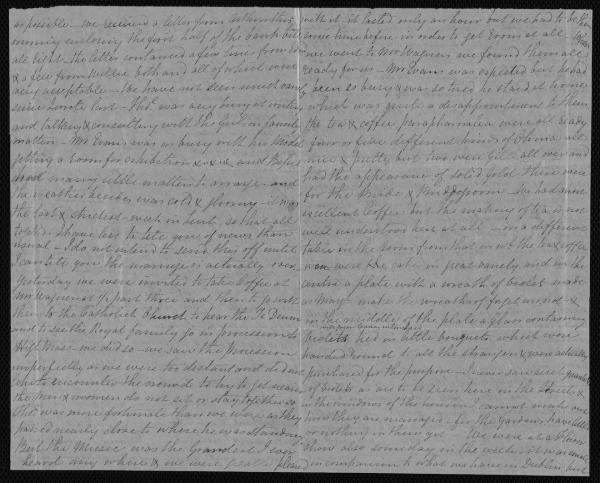 as possible - we received a letter from Arthur this
morning enclosing the first half of the bank bill
all right - the letter contained a few lines from
& a few from Willie both and all of which were
very acceptable - We have not seen much
since I wrote last - Phil was very busy at writing
and talking & consulting with the family
matters - Mr Evans was as busy with his Model
getting a room for exhibition &c &c &c and
had many little matters to arrange - and
the weather besides was cold & stormy - it was
the last & strictest week in Lent so that all
together I have less to tell you of news than
usual - I do not intend to send this off until
I can tell you the marriage is actually over
Yesterday we were invited to take Coffee at
Mr Wagners at ½ past three and then to go with
them to the Catholick Church to hear the Te Deum
and to see the Royal family go in procession to
High Mass - we did so - we saw the procession
imperfectly as we were too distant and did not
like to encounter the crowd to try to get nearer
the men & women do not sit or stay together so
Phil was more fortunate than we were as they
passed nearly close to where he was standing
But the Music was the Grandest I ever
heard any where & we were greatly pleased
with it. it lasted only an hour but we had to be
some time before in order to get room at all
we went to Mr Wagners we found them all
ready for us - Mr Evans was expected but he had
been so busy & was so tired he stayed at home
which was quite a disappointment to them
the tea & coffee paraphernalia were all ready
four or five different kinds of China all
nice & pretty but two were Gilt all over and
had the appearance of solid Gold these were
for the Bride & Bridegroom - we had most
excellent Coffee but the making of tea is not
well understood here at all - on a different
table in the room from that on wh the tea & coffee
were were the cakes in great variety and in the
centre a plate with a wreath of violets made
as Mary makes the wreaths of forget me not - &
in the middle of the plate a Glass containing
Violets tied in little bouquets which were
handed round to all the strangers & were actually
purchased for the purpose - I never saw such
of violets as are to be seen here in the streets &
in the windows of the houses I cannot make out
how they are managed - for the Gardens have little
or nothing in them yet - We were at a Flower
show also some day in the week it was small
in comparison to what we have in Dublin, but